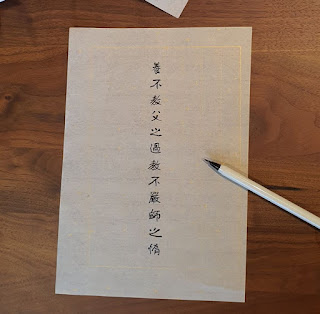 養不教父之過教不嚴師之惰